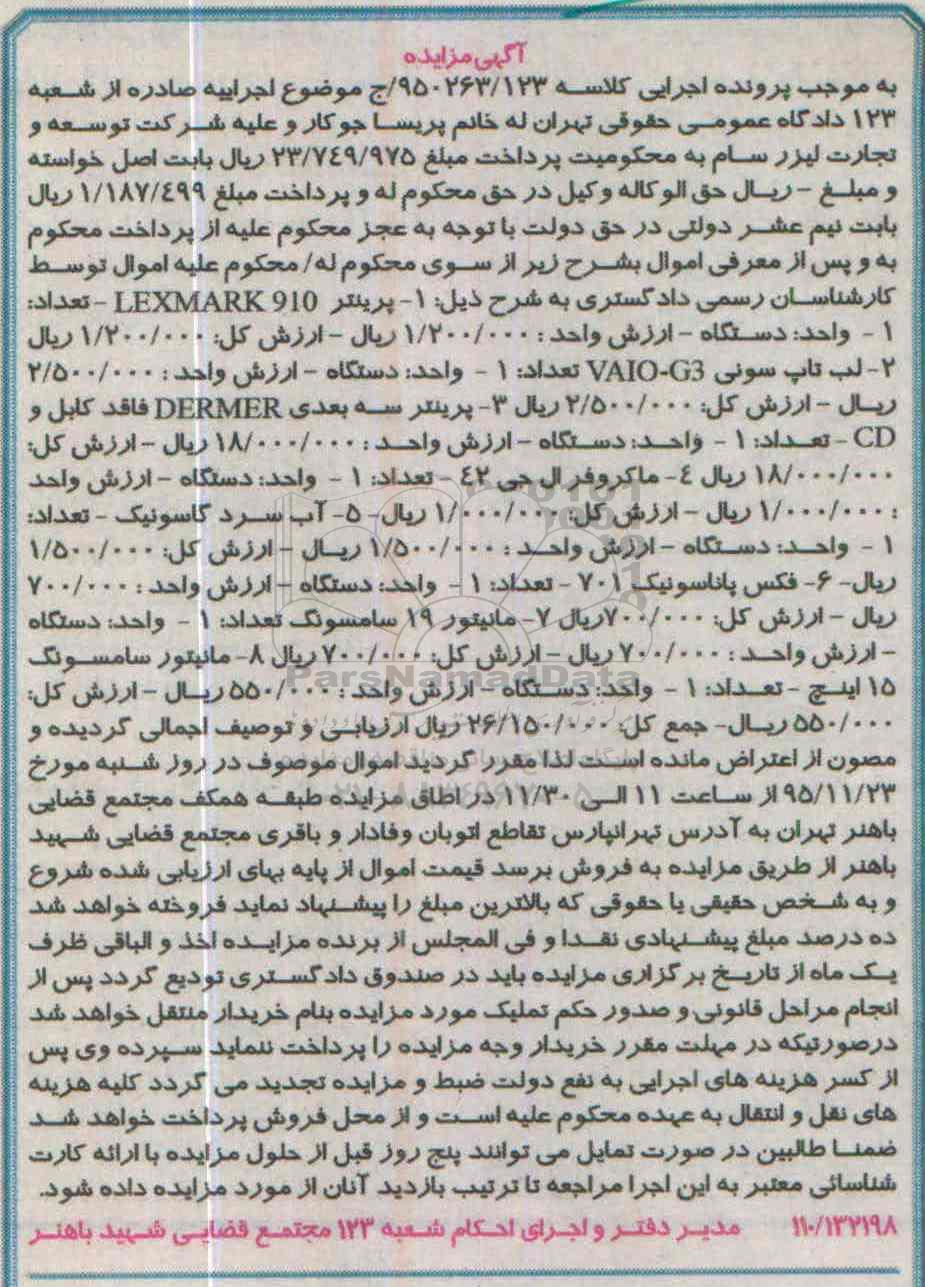 آگهی مزایده
به موجب پرونده اجرایی کلاسه ۹۵۰۲۶۳/۱۲۳/ج موضوع اجراییه صادره از شعبه
۱۲۳ دادگاه عمومی حقوقی تهران له خانم پریسا جوکار و علیه شرکت توسعه و
تجارت لیزر سام به محکومیت پرداخت مبلغ ۲۳/۷٤۹/۹۷۵ ریال بابت اصل خواسته
و مبلغ – ریال حق الوکاله وکیل در حق محکوم له و پرداخت مبلغ ۱/۱۸۷/٤۹۹ ریال
بابت نیم عشر دولتی در حق دولت با توجه به عجز محکوم علیه از پرداخت محکوم
به و پس از معرفی اموال بشرح زیر از سوی محکوم له/ محکوم علیه اموال توسط
کارشناسان رسمی دادگستری به شرح ذیل: ۱- پرینتر LEXMARK 910 – تعداد:
۱ – واحد: دستگاه – ارزش واحد: ۱/۲۰۰/۰۰۰ ریال – ارزش کل: ۱/۲۰۰/۰۰۰ ریال
۲- لب تاپ سونی VAIO-G3 تعداد: ۱ – واحد: دستگاه – ارزش واحد: ۲/۵۰۰/۰۰۰
ریال – ارزش کل: ۲/۵۰۰/۰۰۰ ریال ۳- پرینتر سه بعدی DERMER فاقد کابل و
CD – تعداد: ۱ – واحد: دستگاه – ارزش واحد: ۱۸/۰۰۰/۰۰۰ ریال – ارزش کل:
۱۸/۰۰۰/۰۰۰ ریال ٤- ماکروفر ال جی ٤۲ – تعداد: ۱ – واحد: دستگاه – ارزش واحد
: ۱/۰۰۰/۰۰۰ ریال – ارزش کل: ۱/۰۰۰/۰۰۰ ریال- ۵- آب سرد گاسونیک – تعداد:
۱ – واحد: دستگاه – ارزش واحد: ۱/۵۰۰/۰۰۰ ریال – ارزش کل: ۱/۵۰۰/۰۰۰
ریال- ۶- فکس پاناسونیک ۷۰۱ – تعداد: ۱ – واحد: دستگاه – ارزش واحد: ۷۰۰/۰۰۰
ریال – ارزش کل: ۷۰۰/۰۰۰ریال ۷- مانیتور ۱۹ سامسونگ تعداد: ۱ – واحد: دستگاه
– ارزش واحد: ۷۰۰/۰۰۰ ریال – ارزش کل: ۷۰۰/۰۰۰ ریال ۸- مانیتور سامسونگ
۱۵ اینچ – تعداد: ۱ – واحد: دستگاه – ارزش واحد: ۵۵۰/۰۰۰ ریال – ارزش کل:
۵۵۰/۰۰۰ ریال- جمع کل: ۲۶/۱۵۰/۰۰۰ ریال ارزیابی و توصیف اجمالی گردیده و
مصون از اعتراض مانده است لذا مقرر گردید اموال موصوف در روز شنبه مورخ
۹۵/۱۱/۲۳ از ساعت ۱۱ الی ۱۱/۳۰ در اطاق مزایده طبقه همکف مجتمع قضایی
باهنر تهران به آدرس تهرانپارس تقاطع اتوبان وفادار و باقری مجتمع قضایی شهید
باهنر از طریق مزایده به فروش برسد قیمت اموال از پایه بهای ارزیابی شده شروع
و به شخص حقیقی یا حقوقی که بالاترین مبلغ را پیشنهاد نماید فروخته خواهد شد
ده درصد مبلغ پیشنهادی نقدا و فی المجلس از برنده مزایده اخذ و الباقی ظرف
یک ماه از تاریخ برگزاری مزایده باید در صندوق دادگستری تودیع گردد پس از
انجام مراحل قانونی و صدور حکم تملیک مورد مزایده بنام خریدار منتقل خواهد شد
درصورتیکه در مهلت مقرر خریدار وجه مزایده را پرداخت ننماید سپرده وی پس
از کسر هزینه های اجرایی به نفع دولت ضبط و مزایده تجدید می گردد کلیه هزینه
های نقل و انتقال به عهده محکوم علیه است و از محل فروش پرداخت خواهد شد
ضمنا طالبین در صورت تمایل می توانند پنج روز قبل از حلول مزایده با ارائه کارت
شناسائی معتبر به این اجرا مراجعه تا ترتیب بازدید آنان از مورد مزایده داده شود.
۱۱۰/۱۳۲۱۹۸ مدیر دفتر و اجرای احکام شعبه ۱۲۳ مجتمع قضایی شهید باهنر
ParsNamadData